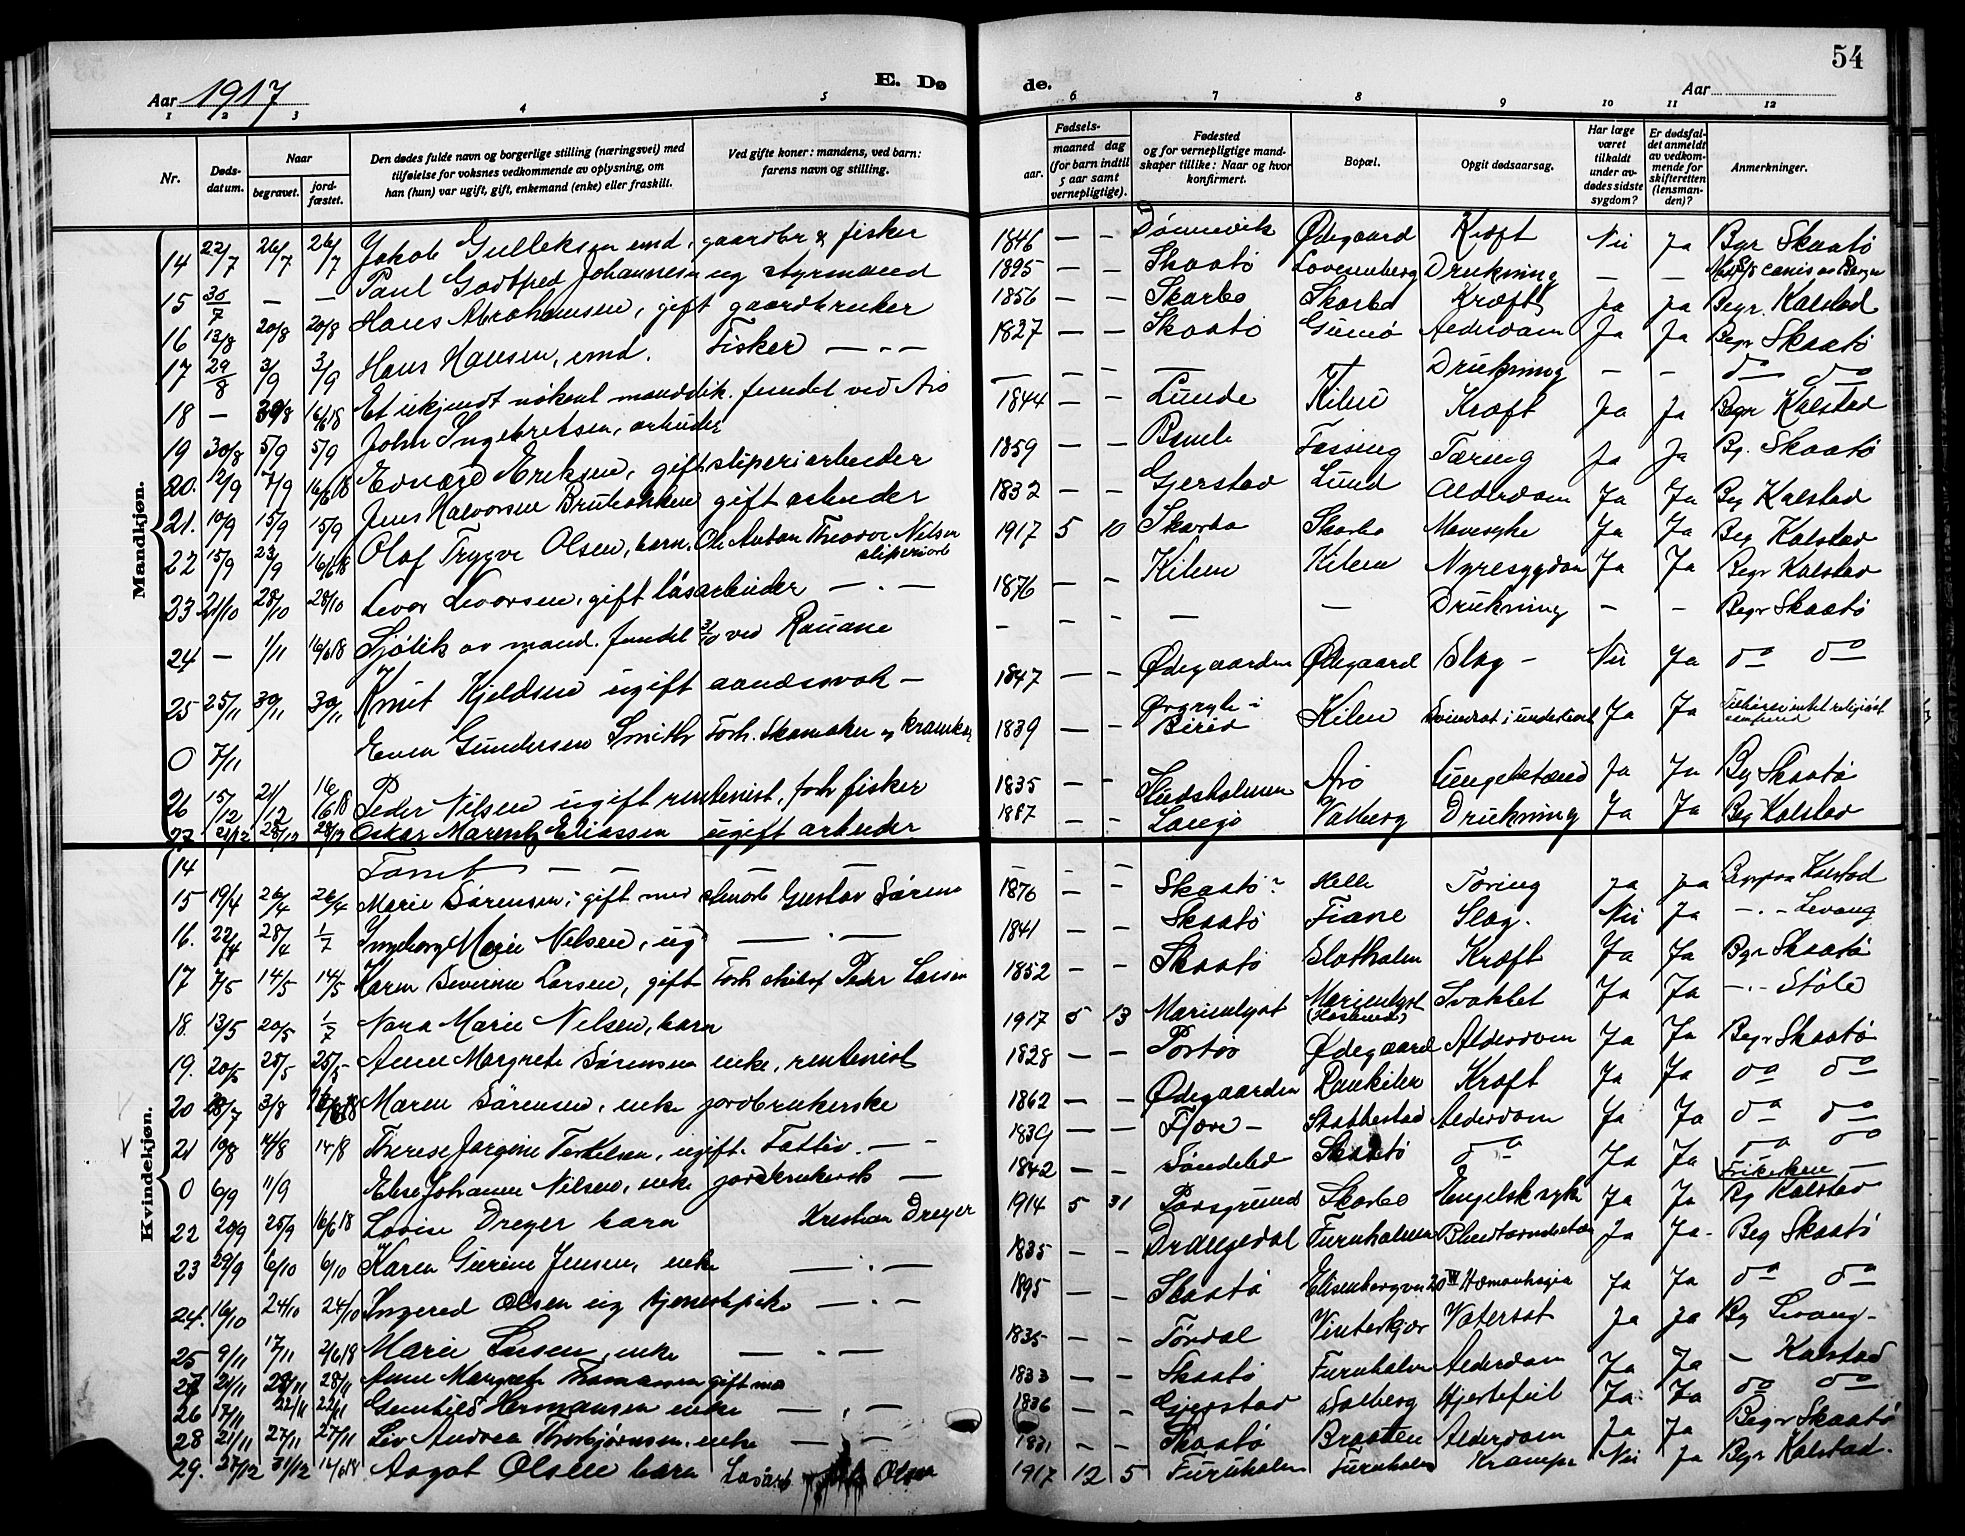 54
Aar 1917
E. Dø
de.
Aar
1 2 3 4 5 6 7 8 9 10 11 12
Nr.
Døds-datum.
Naar
begravet.
jord-fæstet.
Den dødes fulde navn og borgerlige stilling (næringsvei) med tilføielse for voksnes vedkommende av oplysning, om han (hun) var ugift, gift, enkemand (enke) eller fraskilt.
Ved gifte koner: mandens, ved barn: farens navn og stilling.
Fødsels-
aar.
maaned dag (for barn indtil 5 aar samt vernepligtige).
Fødested og for vernepligtige mandskaper tillike: Naar og hvor konfirmert.
Bopæl.
Opgit dødsaarsag.
Har læge været tilkaldt under avdødes sidste sygdom?
Er dødsfaldet anmeldt av vedkommende for skifteretten (lensmanden)?
Anmerkninger.
Mandkjøn.
14 22/7 26/7 26/7 Jakob Gulleksen emd. gaardbr & fisker 1846 — — Dønnevik Ødegaard Kræft Nei Ja Bgr Skaatø
15 30/7 — — Paul Godtfred Johannesen ug styrmand 1895 — — Skaatø Lovisenberg Drukning — —
16 13/8 20/8 20/8 Hans Abrahamsen, gift gaardbruker 1856 — — Skarbo Skarbo Kræft Ja Ja Begr. Kalstad
17 29/8 3/9 3/9 Hans Hansen, emd. Fisker — . — 1827 — — Skaatø Gumø Alderdom Ja Ja Begr Skaatø
18 — 30/8 16/6 18 Et ukjendt nøkent manddlik. fundet ved Arø — — — — Drukning — — do do
19 30/8 5/9 5/9 John Ingebretsen, arbeider 1844 — — Lunde Kilen Kræft Ja Ja Begr Kalstad
20. 12/9 7/9 16/6 18 Edvard Eriksen, gift sliperiarbeider 1859 — — Bamle Fossing Tæring Ja Ja Bg. Skaatø
21. 10/9 15/9 15/9 Jens Halvorsen Brubakken gift arbeider 1832 — — Gjerstad Lund Alderdom Ja Ja Bg Kalstad
22 15/9 23/9 16/6 18 Olaf Trygve Olsen, barn, Ole Anton Theodor Nilsen sliperiarb 1917 5 10 Skarbo Skarbo Mavesyke Ja Ja Beg Kalstad
23 21/10 28/10 28/10 Levor Levorsen, gift løsarbeider — . — 1876 — — Kilen Kilen Nyresygdom Ja Ja Begr Kalstad
24 — 1/11 16/6 18 Sjølik av mand. fundet 31/10 ved Rauane — — — — — Drukning — — Begr Skaatø
25 25/11 30/11 30/11 Knut Kjeldsen ugift aandssvak — 1847 — — Ødegaarden Ødegaard Slag — Nei Ja do do
0 7/11 Even Gundersen Smith Forh. Skomaker og kramkar 1839 — — Birid Kilen Ja Ja Tilhører intet religiøst samfund
26 15/12 21/12 16/6 18 Peder Nilsen ugift rentenist, forh fisker 1835 — — Arø Lungebetænd Ja Ja Bg Skaatø
27 21/12 28/12 28/12 Oskar Marensly Eliassen ugift arbeider 1887 — — Langø Valberg Drukning Ja Ja Beg Kalstad
Kvindekjøn.
14 Tomt — — — —
15 19/4 26/4 26/4 Marie Sørensen; gift med Gustav Søren 1876 — — Skaatø? Helle Tæring Ja Ja Kalstad
16. 22/4 28/4 1/7 Ingeborg Marie Nilsen, ug — . — 1841 — — Skaatø Fiane Slag. Nei Ja — . — Levang
17 7/5 14/5 14/5 Karen Severine Larsen, gift Forh Peder Larsen 1852 — — Skaatø Slotholmen Kræft Ja Ja Bgr Skaatø
18. 13/5 20/5 1/7 Nora Marie Nilsen, barn 1917 5 13 Marienlyst Marienlyst Svakhet Ja Ja — . — Støle
19. 20/5 25/5 25/5 Anne Margrete Sørensen enke, rentenist 1828 — — Portør Ødegaard Alderdom Ja Ja Begr Skaatø
20 28/7 3/8 Maren Sørensen, enke jordbrukerske 1862 — — Ødegaarden Raukilen Kræft Ja Ja do do
21 10/8 14/8 14/8 Therese Jørgine Terkelsen, ugift. Fattiv. — - 1839 — — Fjore — Stathestad Alderdom Ja Ja do do
0 6/9 11/9 Else Johanne Nilsen, enke — 1842 — — Søndeled Skaatø do Ja Ja do do Frikirken —
22 20/9 25/9 16/6 18 Lovise Dreyer barn Kristian Dreyer 1914 5 31 Porsgrund Skarbo Engelsk syke Ja Ja Bg Kalstad
23 29/9 6/10 6/10 Karen Gurine Jensen, enke — . — 1835 — — Drangedal Furuholmen Ja Ja. Beg Skaatø
24. 16/10 24/10 24/10 Ingered Olsen ug tjenestepike — . — 1895 — — Skaatø Ja Ja do do
25 9/11 17/11 2/6 18 Maren enke — . — 1835 — — Tørdal Vinterkjær Vatersot Ja Ja Bg Levang.
27 21/11 28/11 28/11 Anne Margrete Thomassen gift med 1833 — — Skaatø Furuholmen Alderdom Ja Ja — Kalstad
26 17/11 22/11 22/11 Gunhild Hermansen enke — . — 1836 — — Gjerstad Solberg Hjertefeil Ja Ja do do
28 21/11 27/11 27/11 Liv Andrea Thorbjørnsen. enke — — — — Skaatø Braaten Alderdom Ja Ja Begr Skaatø
29. 27/12 31/12 16/6 18 Aagot Olsen barn Olsen 1917 12 5 Furuholmen Furuholmen Krampe Nei Ja Bgr Kalstad.